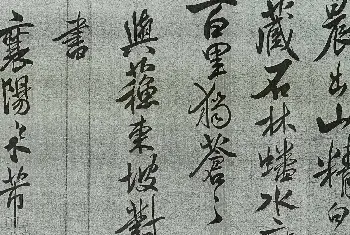 晨出山精白
藏石林蟠水
百里獨蒼々
與蘇東坡對
書
襄陽米芾